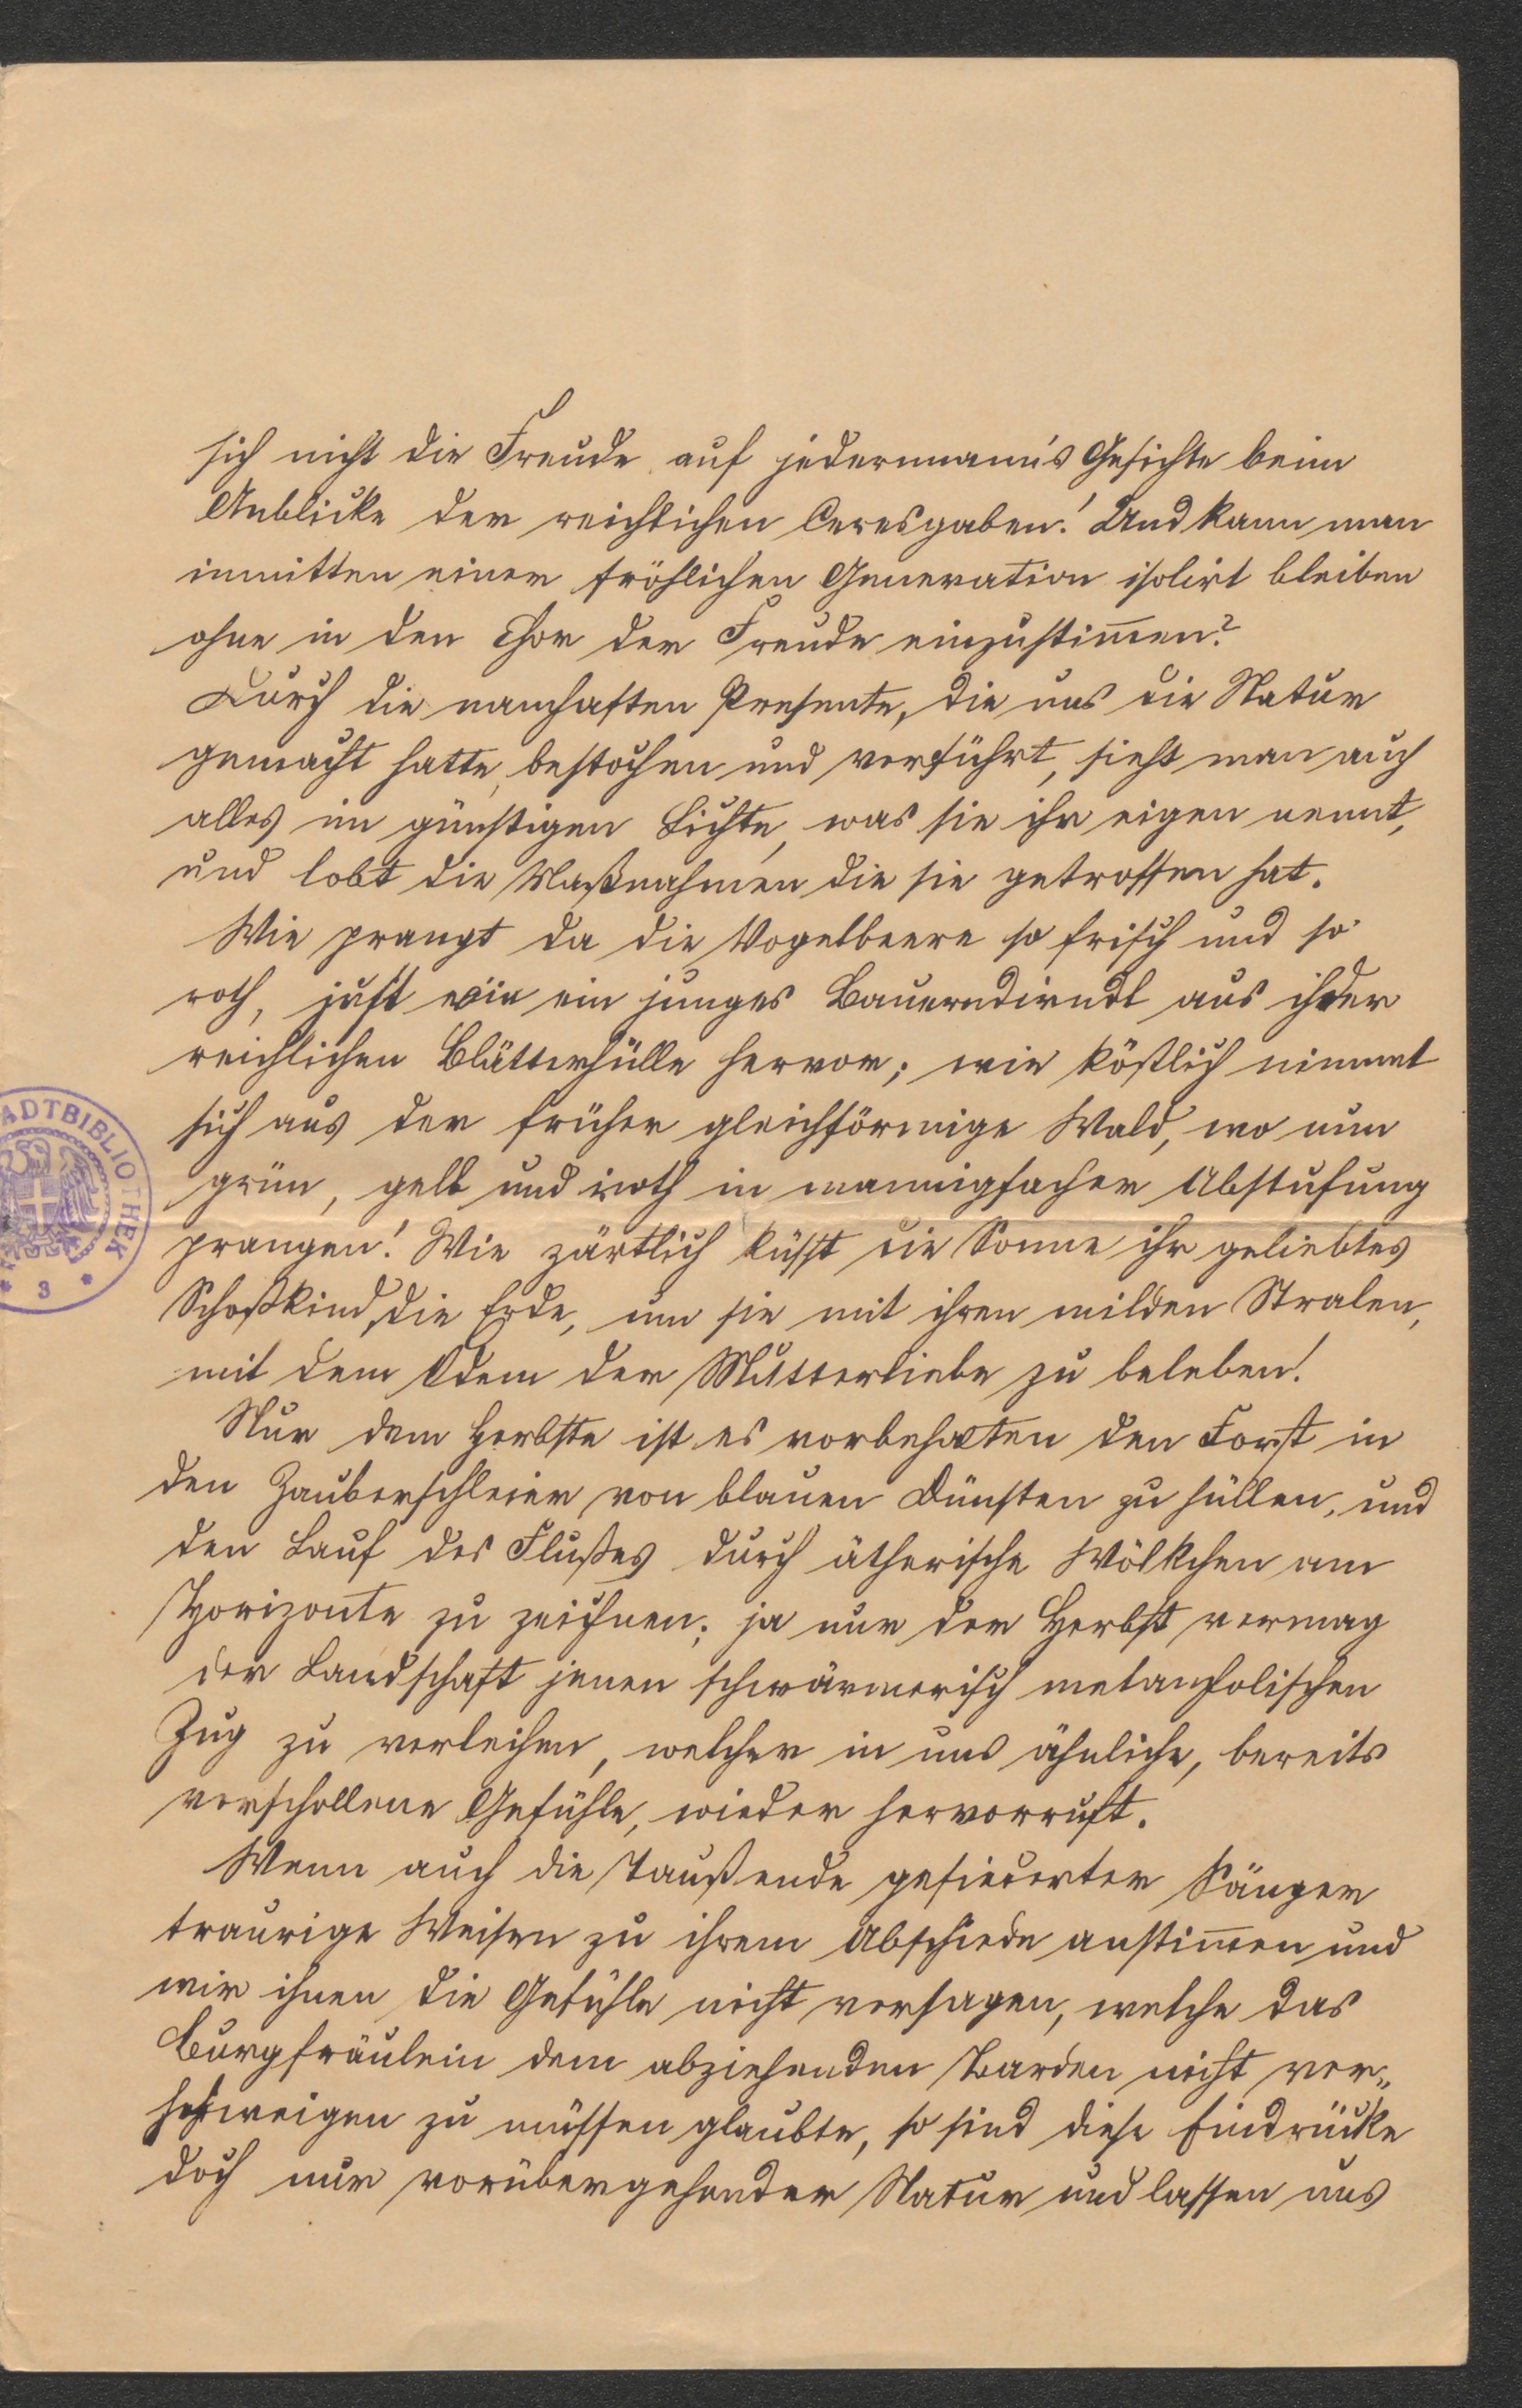 sich nicht die Freude auf jedermann's Gesichte beim
Anblicke der reichlichen Ceresgaben! Und kann man
inmitten einer fröhlichen Generation isolirt bleiben
ohne in den Chor der Freude einzustim̄en?
Durch die namhaften Presente, die uns die Natur
gemacht hatte, bestochen und verführt, sieht man auch
alles im günstigen Lichte, was sie ihr eigen nennt,
und lobt die Maßnahmen die sie getroffen hat.
Wie prangt da die Vogelbeere so frisch und so
roth, just wie ein junges Bauerndirndl aus der
reichlichen Blätterhülle hervor; wie köstlich nimmt
sich aus der früher gleichförmige Wald, wo nun
grün, gelb und roth in mannigfacher Abstufung
prangen! Wie zärtlich küsst die Sonne ihr geliebtes
Schoßkind, die Erde, um sie mit ihren milden Stralen,
mit dem Odem der Mutterliebe zu beleben!
Nur dem Herbste ist es vorbehalten den Forst in
den Zauberschleier von blauen Dünsten zu hüllen, und
den Lauf des Flußes durch ätherische Wölkchen am
Horizonte zu zeichnen; ja nur der Herbst vermag
der Landschaft jenen schwärmerisch melancholischen
Zug zu verleihen, welcher in uns ähnliche, bereits
verschollene Gefühle, wieder hervorruft.
Wenn auch die Taußende gefiederter Sänger
traurige Weisen zu ihrem Abschiede anstim̄en und
wir ihnen die Gefühle nicht versagen, welche das
Burgfräulein dem abziehenden Barden nicht ver„
schweigen zu müssen glaubte, so sind diese Eindrücke
doch nur vorübergehender Natur und lassen uns
ADTBIBLIOTHEK
* 3 *